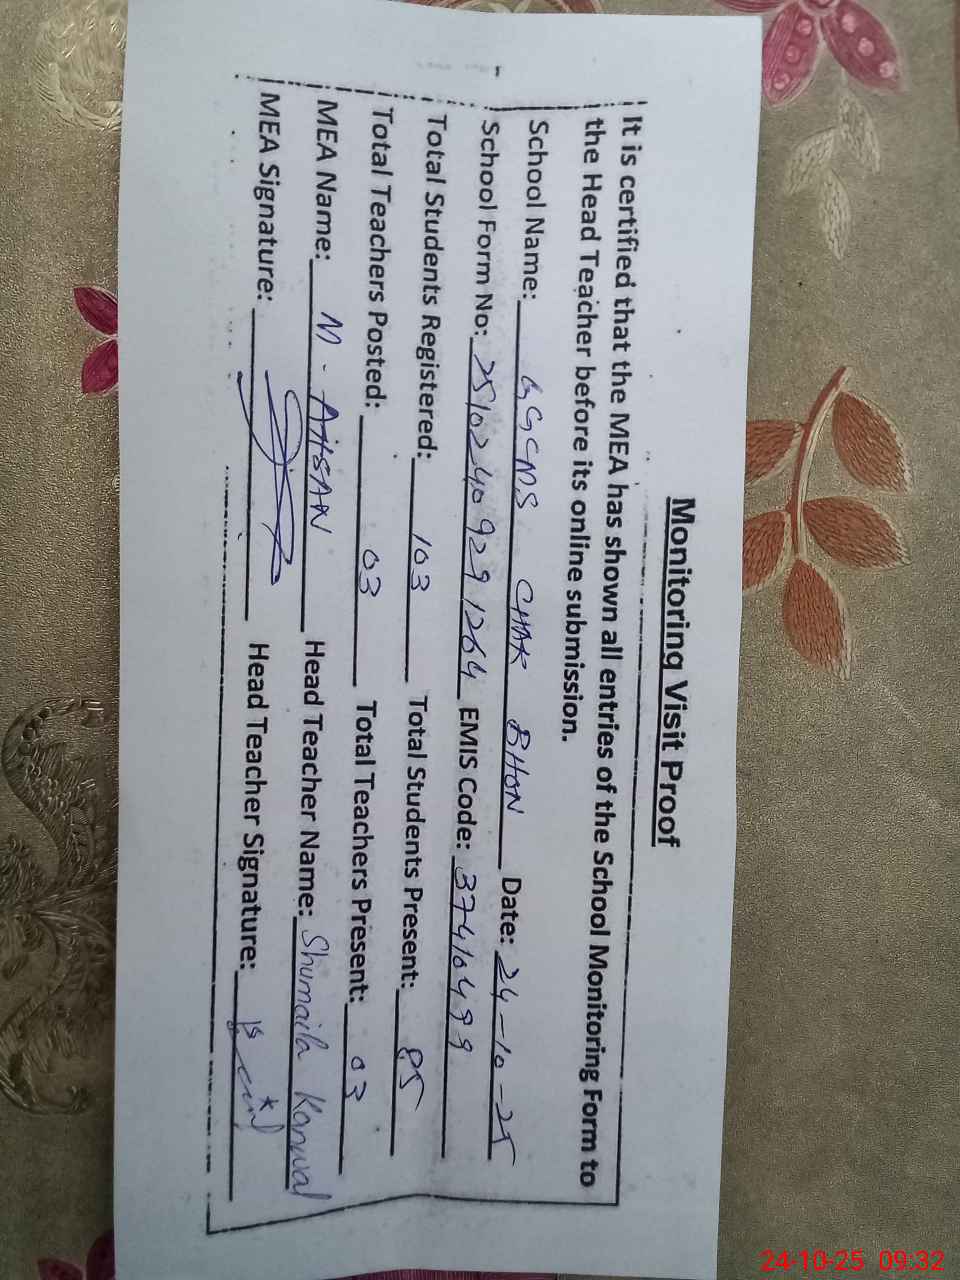 Monitoring Visit Proof
It is certified that the MEA has shown all entries of the School Monitoring Form to
the Head Teacher before its online submission.
School Name: GGCMS CHAK BHON Date: 24-10-25
School Form No: 25102409291264 EMIS Code: 37410499
Total Students Registered: 103 Total Students Present: 85
Total Teachers Posted: 03 Total Teachers Present: 03
MEA Name: M. AHSAN Head Teacher Name: Shumaila Kanwal
MEA Signature: Head Teacher Signature:
24-10-25 09:32